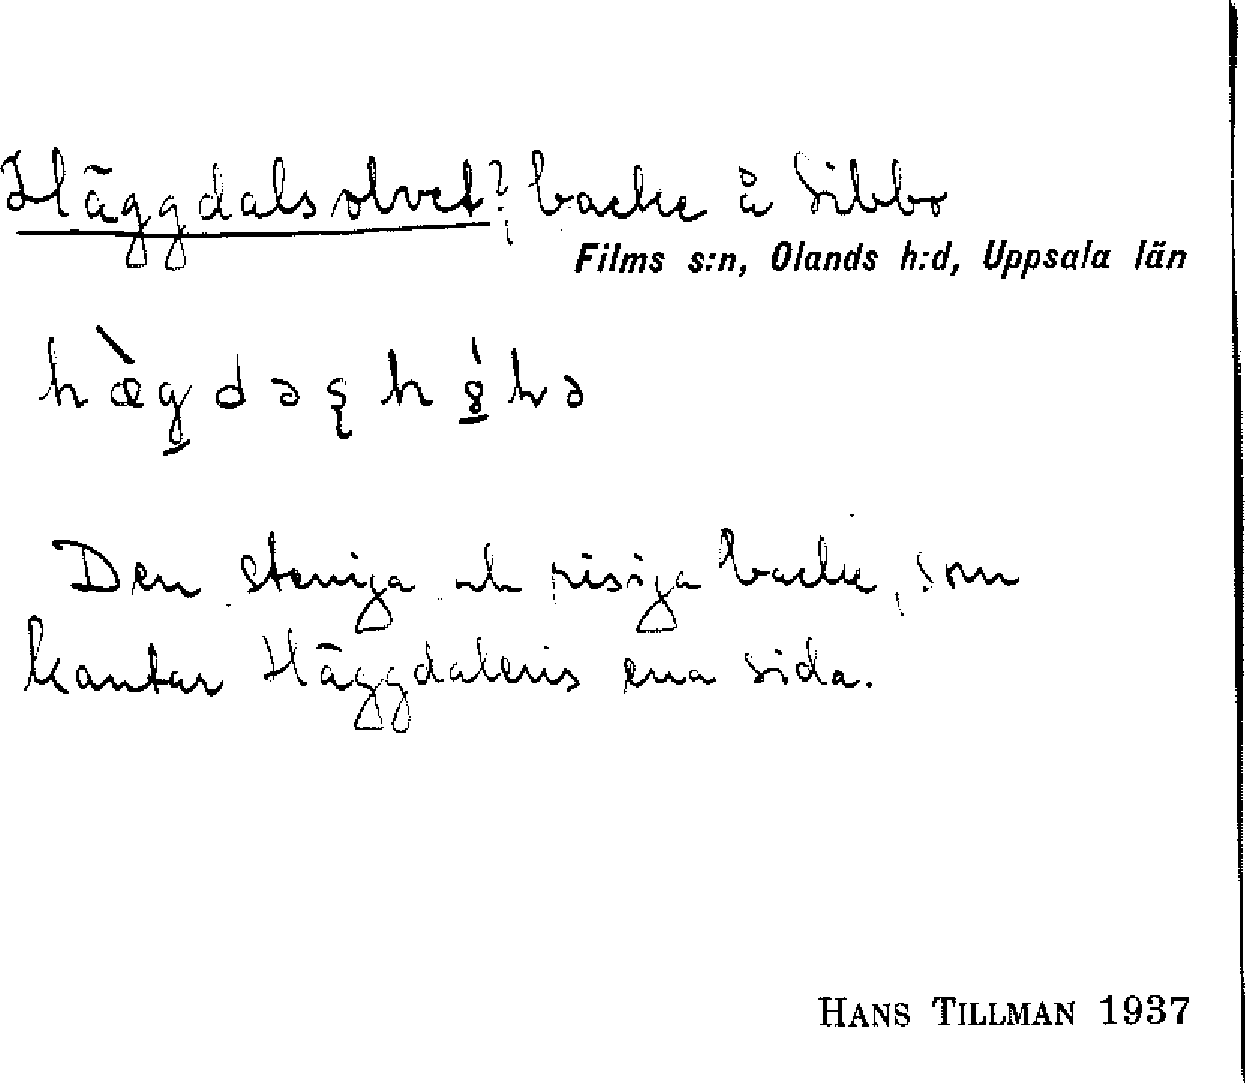 Häggdalsolvet?, backe å Sibbo
Films s:n, Olands h:d, Uppsala län
Den steniga och risiga backe, som
kantar Häggdalens ena sida.
HANS TILLMAN 1937